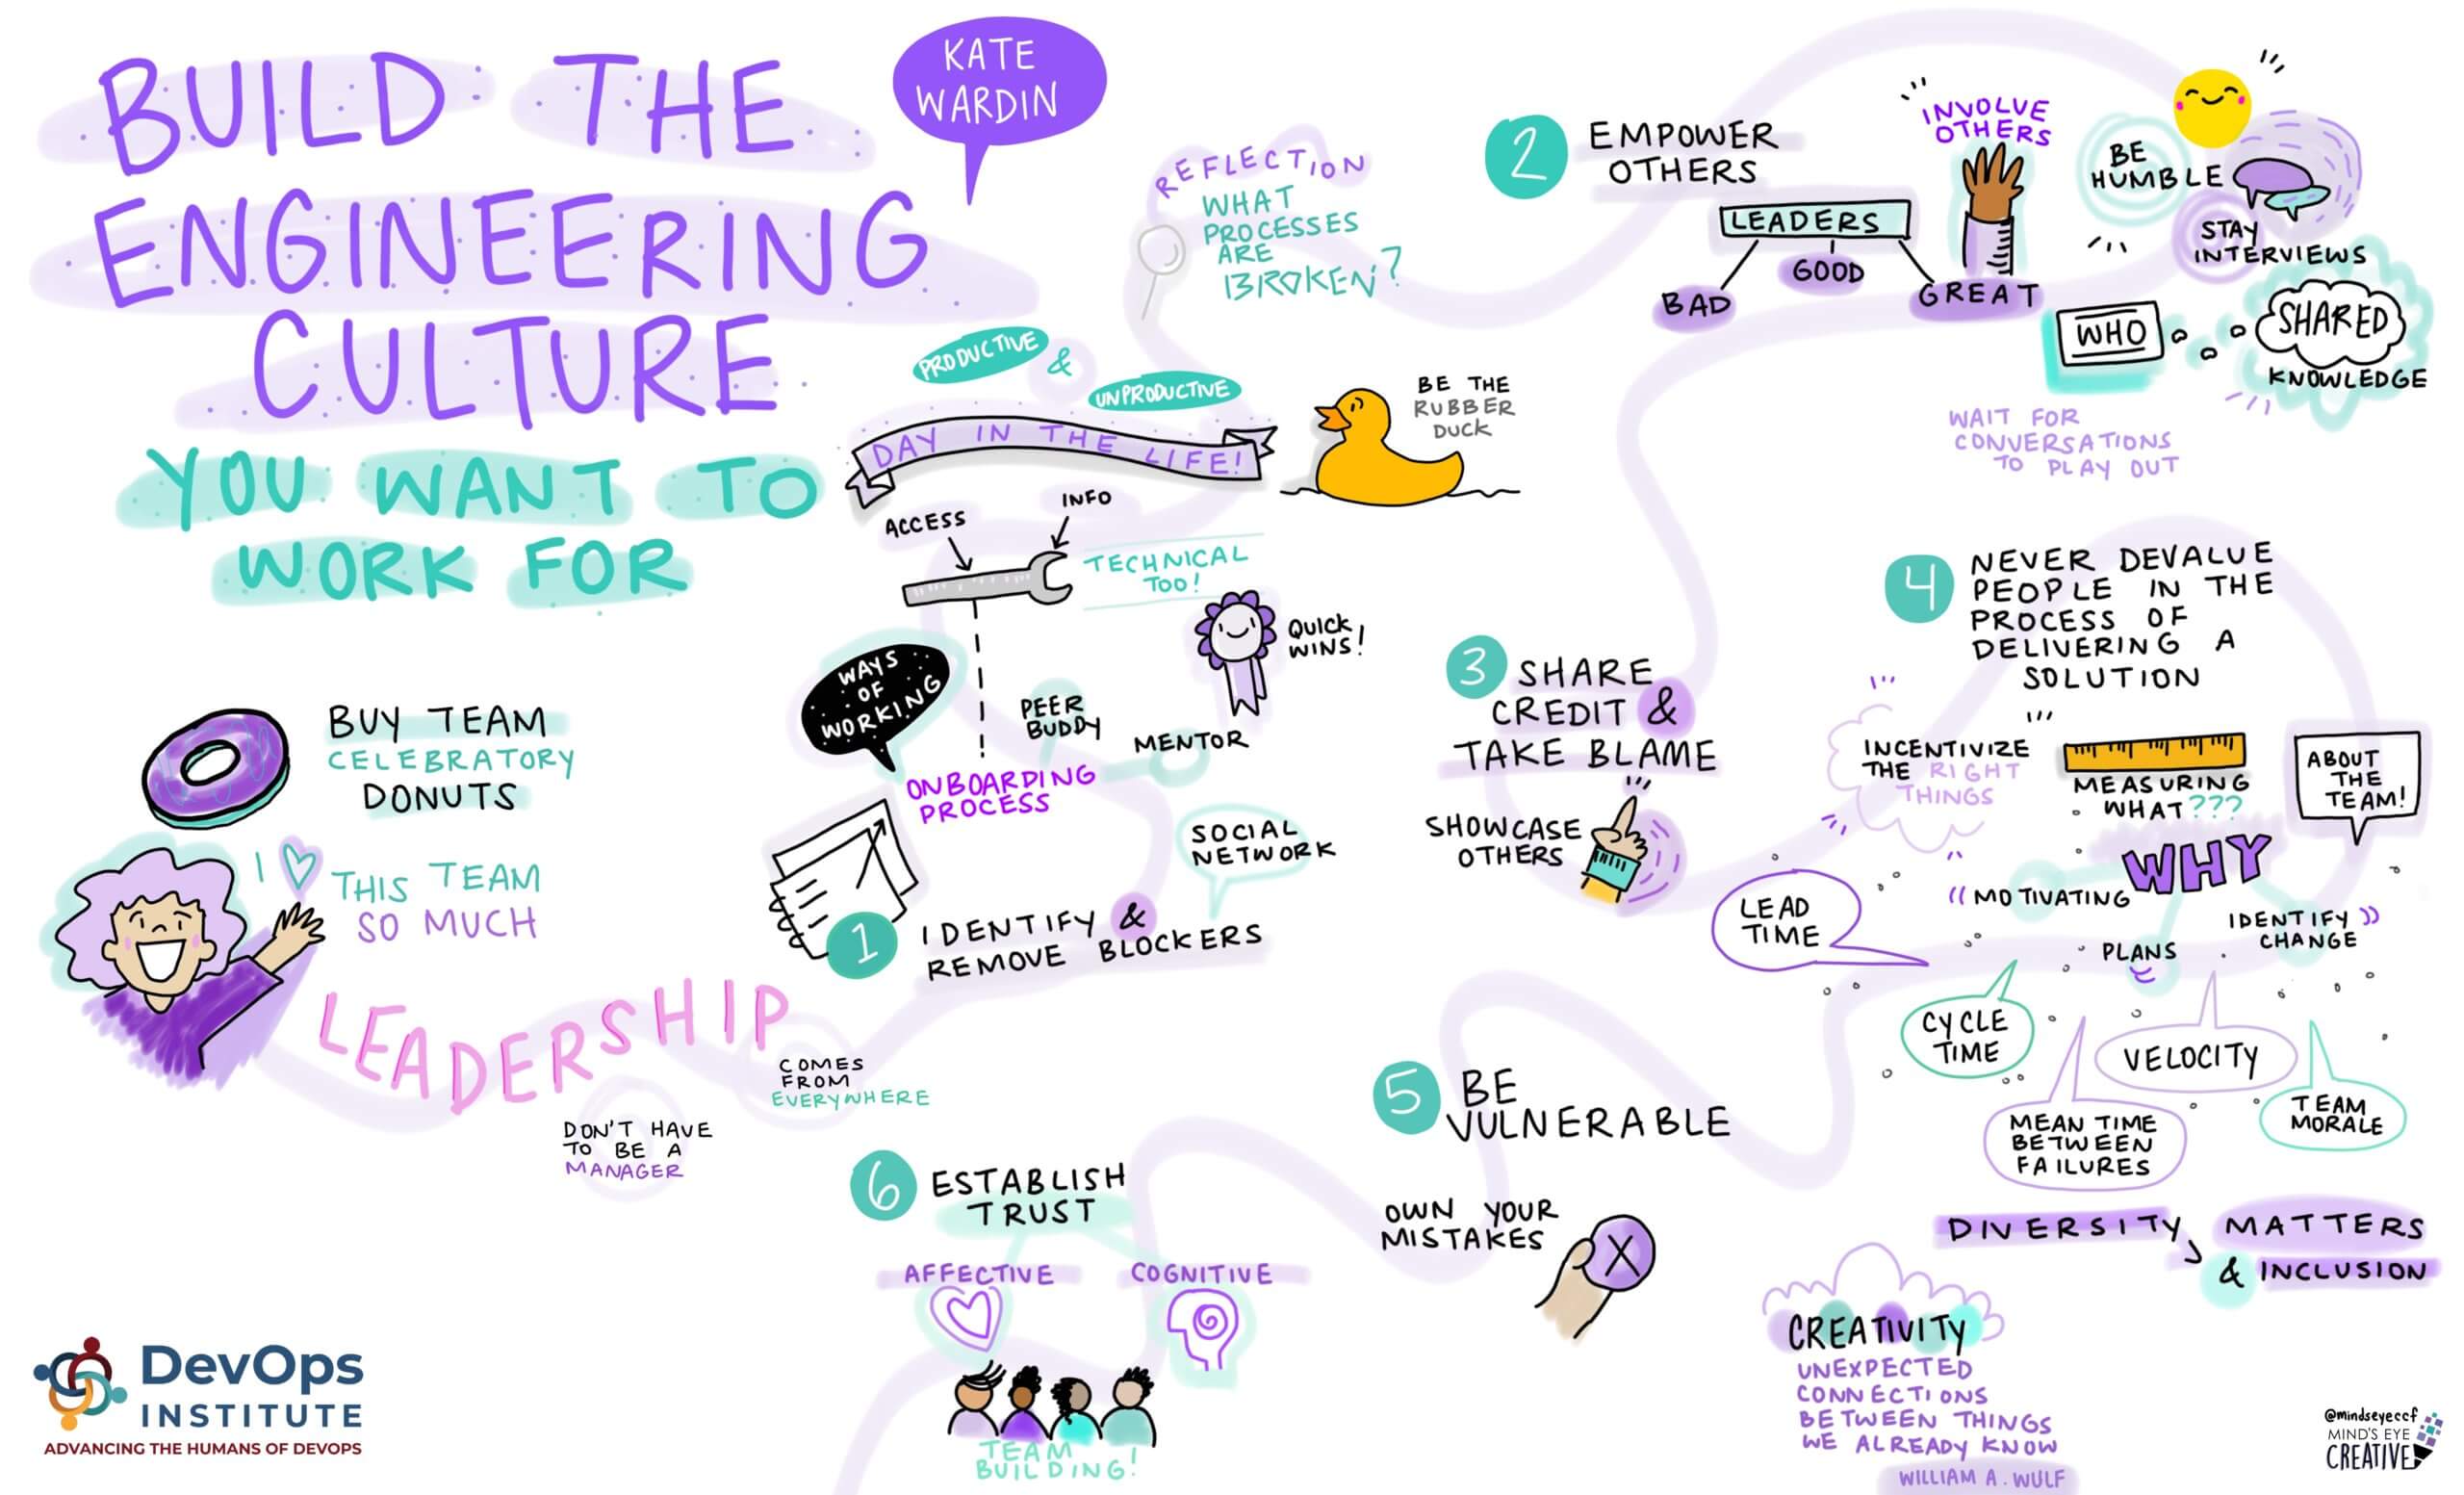 BUILD THE
ENGINEERING
CULTURE
YOU WANT TO
WORK FOR
KATE
WARDIN
BUY TEAM
CELEBRATORY
DONUTS
I
THIS TEAM
SO MUCH
LEADERSHIP
DON'T HAVE
TO BE A
MANAGER
COMES
FROM
EVERYWHERE
REFLECTION
WHAT
PROCESSES
ARE
BROKEN?
PRODUCTIVE
&
UNPRODUCTIVE
DAY IN THE LIFE!
BE THE
RUBBER
DUCK
ACCESS
INFO
TECHNICAL
TOO!
QUICK
WINS!
WAYS
OF
WORKING
PEER
BUDDY
MENTOR
ONBOARDING
PROCESS
SOCIAL
NETWORK
1
IDENTIFY &
REMOVE BLOCKERS
2
EMPOWER
OTHERS
LEADERS
BAD
GOOD
GREAT
INVOLVE
OTHERS
BE
HUMBLE
STAY
INTERVIEWS
WHO
SHARED
KNOWLEDGE
WAIT FOR
CONVERSATIONS
TO PLAY OUT
3
SHARE
CREDIT &
TAKE BLAME
SHOWCASE
OTHERS
4
NEVER DEVALUE
PEOPLE IN THE
PROCESS OF
DELIVERING A
SOLUTION
INCENTIVIZE
THE RIGHT
THINGS
MEASURING
WHAT???
ABOUT
THE
TEAM!
WHY
MOTIVATING
PLANS
IDENTIFY
CHANGE
LEAD
TIME
CYCLE
TIME
VELOCITY
MEAN TIME
BETWEEN
FAILURES
TEAM
MORALE
5
BE
VULNERABLE
OWN YOUR
MISTAKES
X
DIVERSITY MATTERS
& INCLUSION
CREATIVITY
UNEXPECTED
CONNECTIONS
BETWEEN THINGS
WE ALREADY KNOW
WILLIAM A. WULF
6
ESTABLISH
TRUST
AFFECTIVE
COGNITIVE
TEAM
BUILDING!
DevOps
INSTITUTE
ADVANCING THE HUMANS OF DEVOPS
@mindseyeccf
MIND'S EYE
CREATIVE